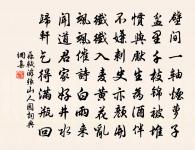 壁間一軸煙蘿子
盆里千枝錦被堆
慣與先生為酒伴
不嫌刺史亦顏開
纖纖入麥黃花亂
颯颯催詩白雨來
聞道君家好井水
歸軒乞得滿瓶回
蘇軾游張山人園詞典
網集